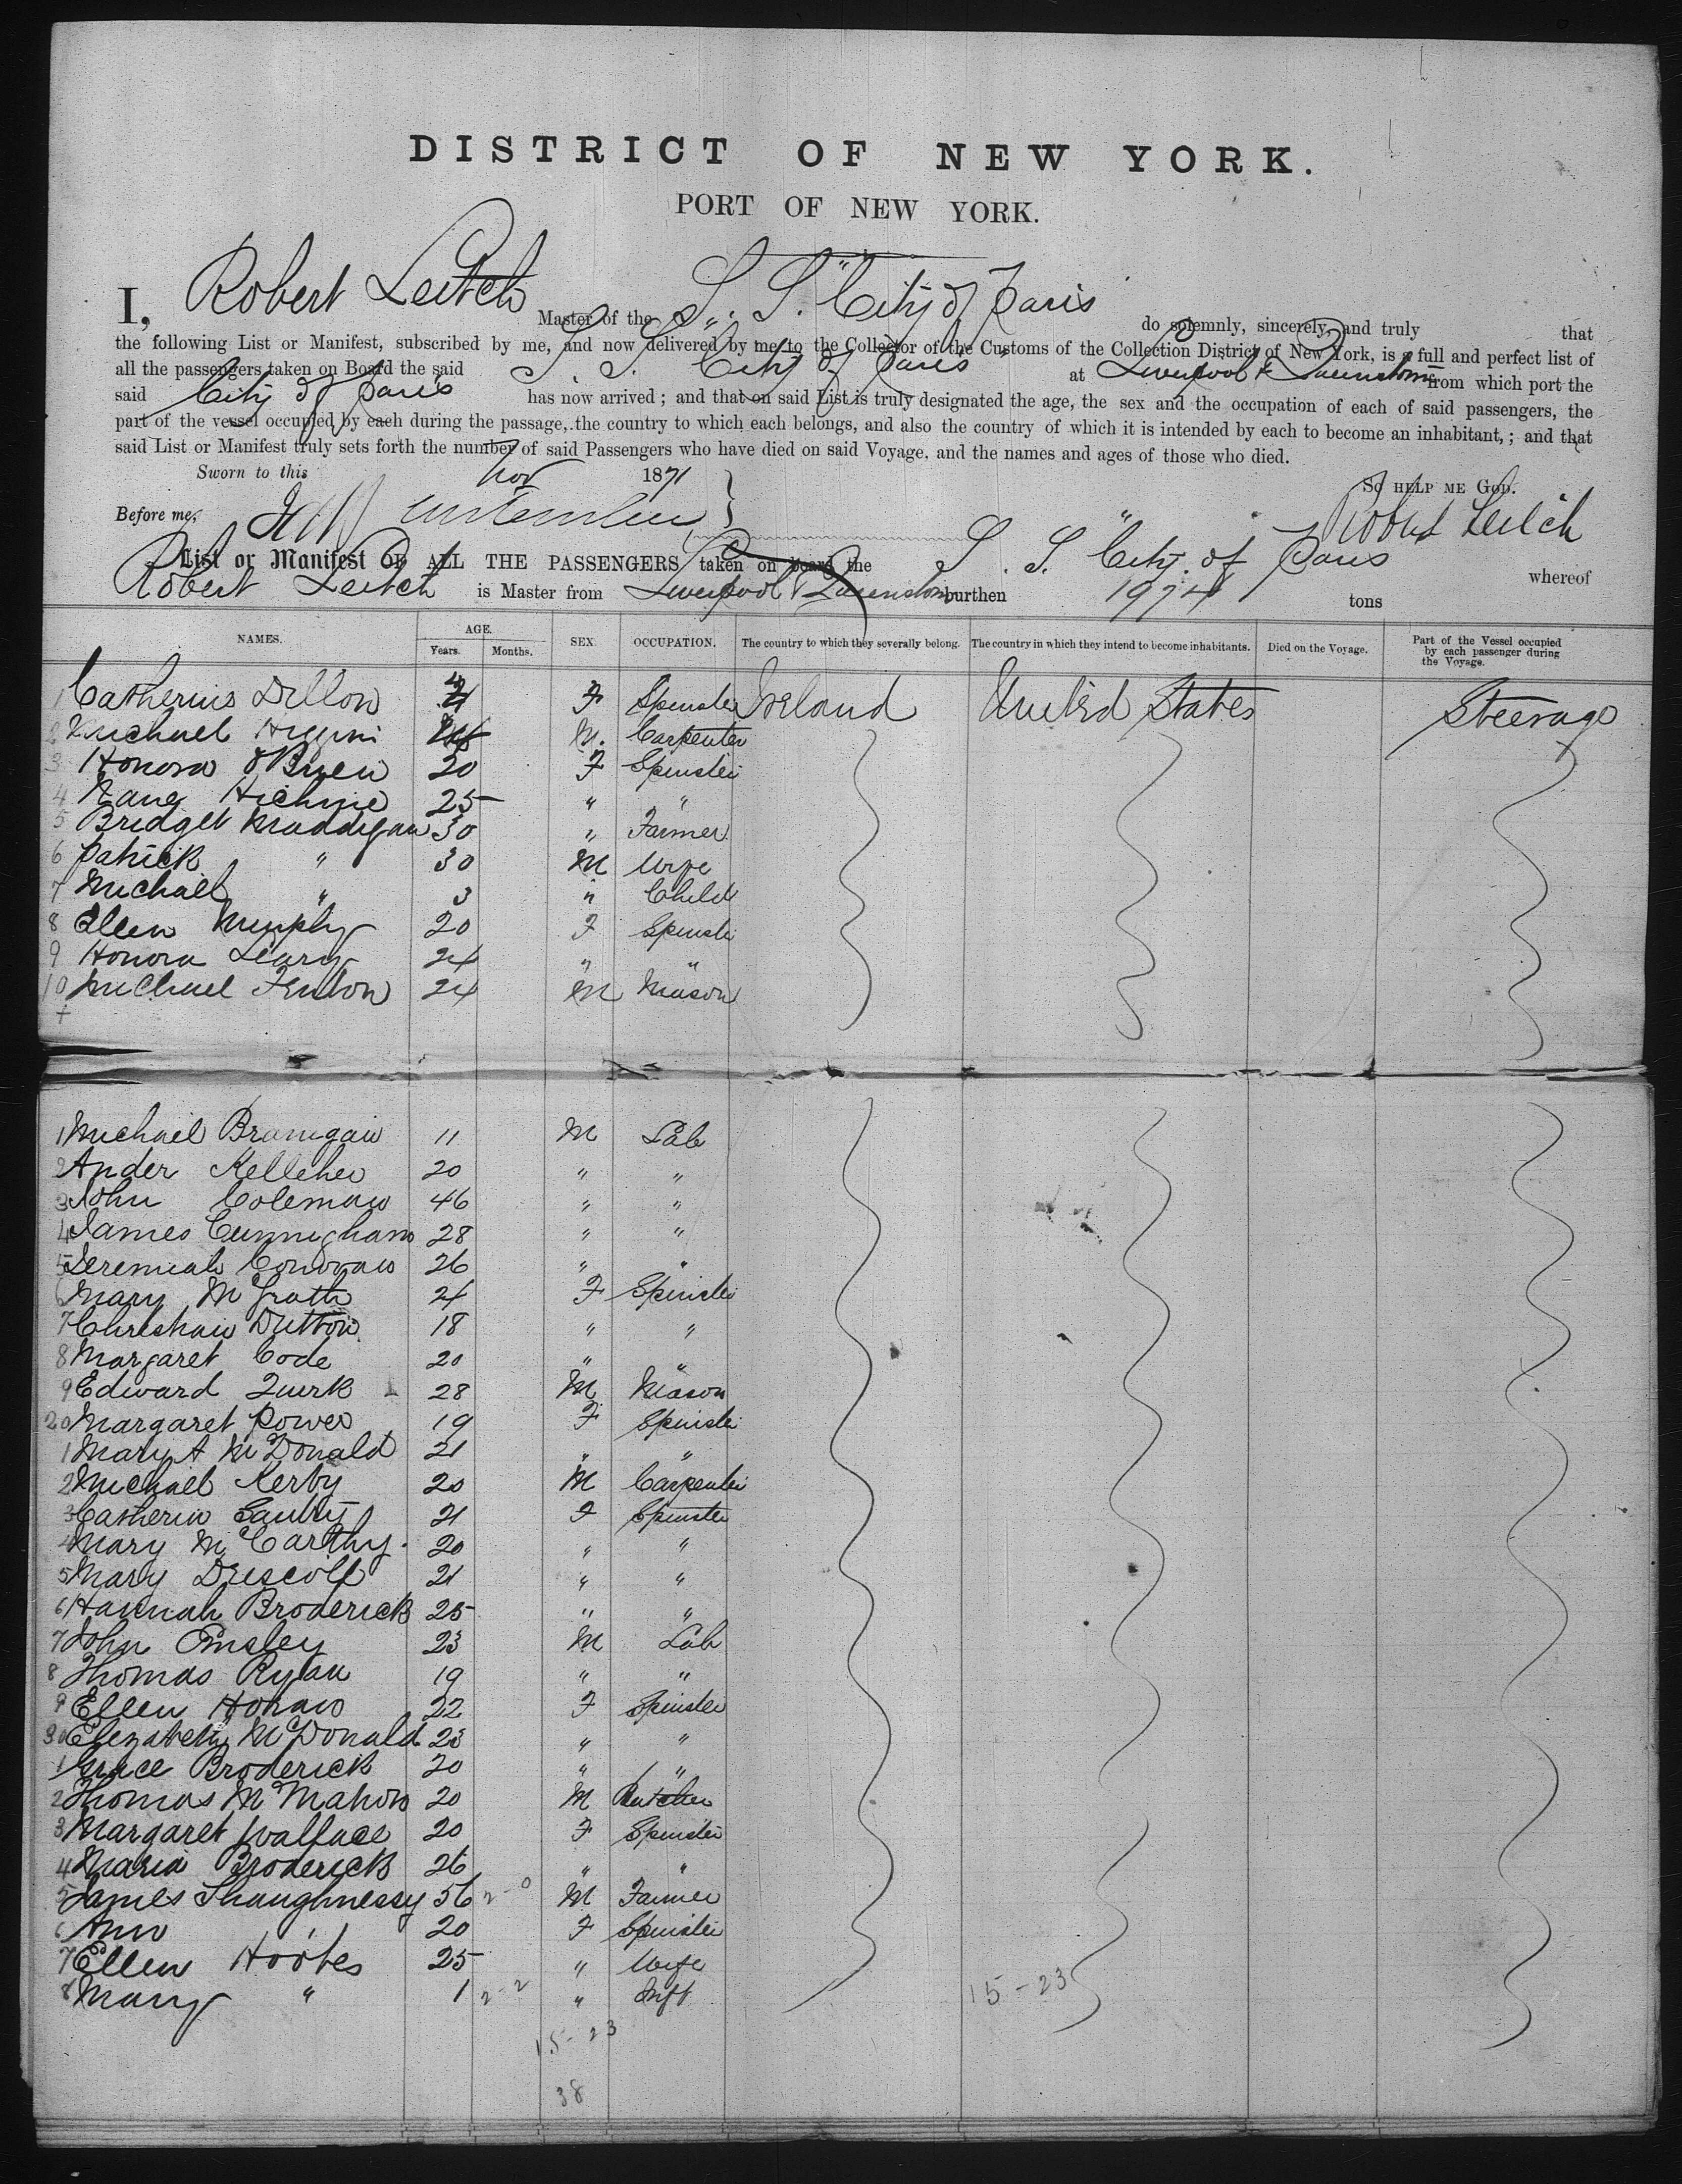 DISTRICT OF NEW YORK.
PORT OF NEW YORK.
I, Robert Leitch Master of the S. S. "City of Paris do solemnly, sincerely, and truly that
the following List or Manifest, subscribed by me, and now delivered by me to the Collector of the Customs of the Collection District of New York, is a full and perfect list of
all the passengers taken on Board the said S. S. City of Paris at Liverpool & Queenstown from which port the
said City of Paris has now arrived ; and that on said List is truly designated the age, the sex and the occupation of each of said passengers, the
part of the vessel occupied by each during the passage, the country to which each belongs, and also the country of which it is intended by each to become an inhabitant, ; and that
said List or Manifest truly sets forth the number of said Passengers who have died on said Voyage, and the names and ages of those who died.
Sworn to this Nov 1871
So HELP ME GOD.
Before me, Robert Leitch
List or Manifest OF ALL THE PASSENGERS taken on board the S. S. "City of Paris whereof
Robert Leitch is Master from Liverpool & Queenstown burthen 1974 tons
NAMES. AGE. Years. Months. SEX. OCCUPATION. The country to which they severally belong. The country in which they intend to become inhabitants. Died on the Voyage. Part of the Vessel occupied by each passenger during the Voyage.
1 Dillon F Spinster Ireland United States Steerage
2 Michael M. Carpenter
3 Honora O'Brien 20 F Spinster
4 25 " "
5 Bridget Maddigan 30 " Farmer
6 Patrick " 30 M Wife
7 Michael " 3 " Child
8 Ellen Murphy 20 F Spinster
9 Honora Leary 24 " "
10 Michael Fenton 24 M Mason
+
1 Michael Branigan 11 M Lab
2 Ander Kelleher 20 " "
3 John Coleman 46 " "
4 James Cunnigham 28 " "
5 Jeremiah Conovan 26 " "
6 Mary McGrath 24 F Spinster
7 Dutton 18 " "
8 Margaret Code 20 " "
9 Edward Quirk 28 M Mason
20 Margaret Power 19 F Spinster
1 Mary A McDonald 21 " "
2 Michael Kerby 20 M Carpenter
3 Catherin 21 F Spinster
4 Mary McCarthy 20 " "
5 Mary Driscoll 21 " "
6 Hannah Broderick 25 " "
7 John Ensley 23 M Lab
8 Thomas Ryan 19 " "
9 Ellen Horan 22 F Spinster
30 Elizabeth McDonald 23 " "
1 Grace Broderick 20 " "
2 Thomas McMahon 20 M Butcher
3 Margaret Wallace 20 F Spinster
4 Maria Broderick 26 " "
5 James Shaughnessy 56 2-0 M Farmer
6 Ann " 20 F Spinster
7 Ellen 25 " Wife
8 Mary " 1 2-2 " Inft
15-23
15-23
38